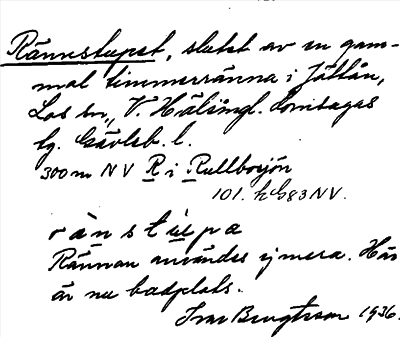 Rännstupet, slutet av en gam-
mal timmerränna i Jättån,
Los sn, V. Hälsingl. domsagas
tg. Gävleb. l.
300 m NV R i Rullbosjön
101. h G 83 NV.
rànstùpa
Rännan användes ej mera. Här
är nu badplats.
Ivar Bengtsson 1936.